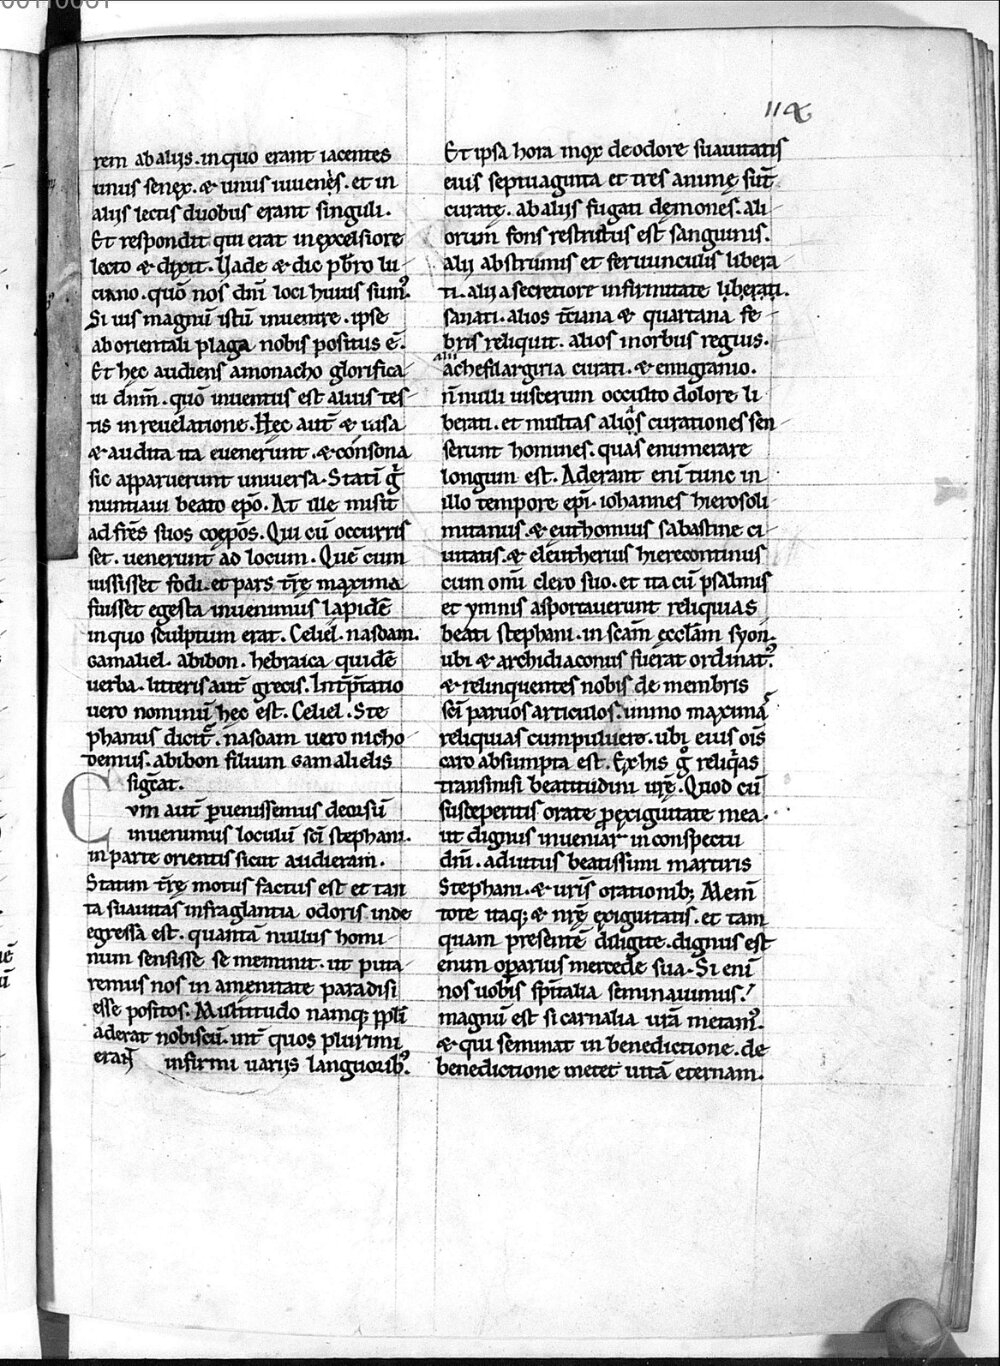 114
rem ab alijs. in quo erant iacentes
unus senex. & unus iuuenis. et in
alijs lectis duobus erant singuli.
Et respondit qui erat in excelsiore
lecto & dixit. Vade & dic pb̄ro lu
ciano. quō nos dn̄i loci huius sum᾿.
Si uis magnū istū inuenire. ipse
ab orientali plaga nobis positus ē.
Et hęc audiens a monacho glorifica
ui dn̄m. quō inuentus est alius tes
tis in reuelatione. Hęc aut̄ & uisa
& audita ita euenerunt. & consona
sic apparuerunt uniuersa. Statī g̊
nuntiaui beato epō. At ille misit
ad fr̄es suos coepōs. Qui cū occurris
set. uenerunt ad locum. Quē cum
iussisset fodi. et pars tr̄ę maxima
fuisset egesta inuenimus lapidē
in quo sculptum erat. Celiel. nasoam.
Gamaliel. abibon. hebraica quidē
uerba. litteris aut̄ grecis. Int̄p̄tatio
uero nominū hęc est. Celiel. Ste
phanus dicit᾿. nasoam uero nicho
demus. abibon filium Gamalielis
sigc̄at.
Cvm aut̄ ꝑuenissemus deorsū
inuenimus loculū sc̄i stephani.
in parte orientis sicut audieram.
Statim tr̄ę motus factus est et tan
ta suauitas infraglantia odoris inde
egressa est. quantā nullus homi
num sensisse se meminit. ut puta
remus nos in amenitate paradisi
esse positos. Multitudo namq; ppl̄i
aderat nobiscū. int̄ quos plurimi
erant infirmi uarijs languorib᾿.
Et ipsa hora mox de odore suauitatis
eius septuaginta et tres animę sūt
curate. ab alijs fugati demones. ali
orum fons restrictus est sanguinis.
alij a strumis et feruunculis libera
ti. alij a secretiore infirmitate liberati.
sanati. alios t̄ciana & quartana fe
bris reliquit. alios morbus regius.
alii
a chefilargiria curati. & emigranio.
n̄nulli uiscerum occulto dolore li
berati. et multas alias curationes sen
serunt homines. quas enumerare
longum est. Aderant enī tunc in
illo tempore ep̄i. iohannes hierosoli
mitanus. & euthomius sabastine ci
uitatis. & eleutherus hierecontinus
cum omī clero suo. et ita cū psalmis
et ymnis asportauerunt reliquias
beati stephani. in sc̄am ęccl̄am syon.
ubi & archidiaconus fuerat ordinat᾿.
& relinquentes nobis de membris
sc̄i paruos articulos. immo maximā
reliquias cum puluere. ubi eius oīs
caro absumpta est. Ex his g̊ reliq̄as
transmisi beatitudini ur̄ę. Quod cū
susceperitis orate ꝓ exiguitate mea.
ut dignus inueniar in conspectu
dn̄i. adiutus beatissimi martiris
Stephani. & ur̄is orationib; Mem̄
tote itaq; & nr̄ę exiguitatis. et tam
quam presentē diligite. dignus est
enim oꝑarius mercede sua. Si enī
nos uobis sp̄italia seminauimus.
magnū est si carnalia ur̄a metam᾿.
& qui seminat in benedictione. de
benedictione metet uitā eternam.